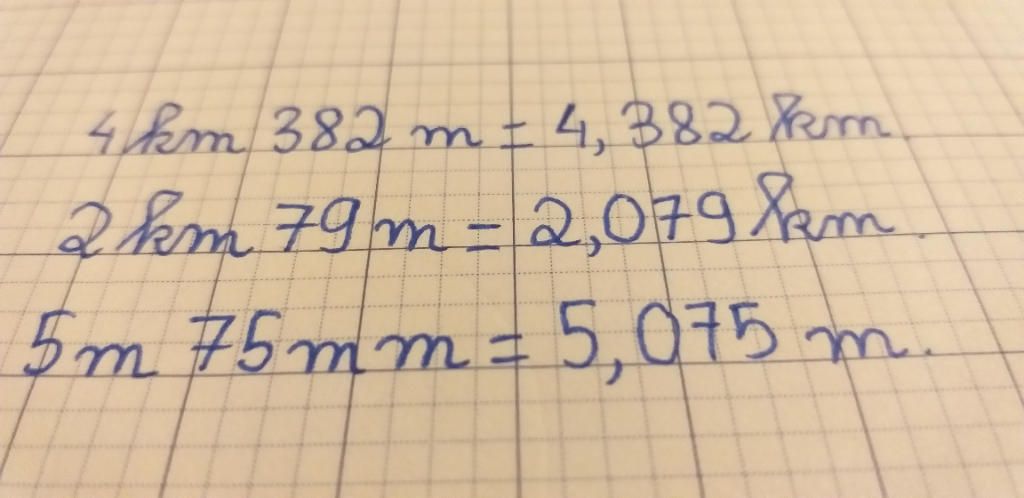 4 km 382 m = 4,382 km.
2 km 79 m = 2,079 km.
5 m 75 mm = 5,075 m.